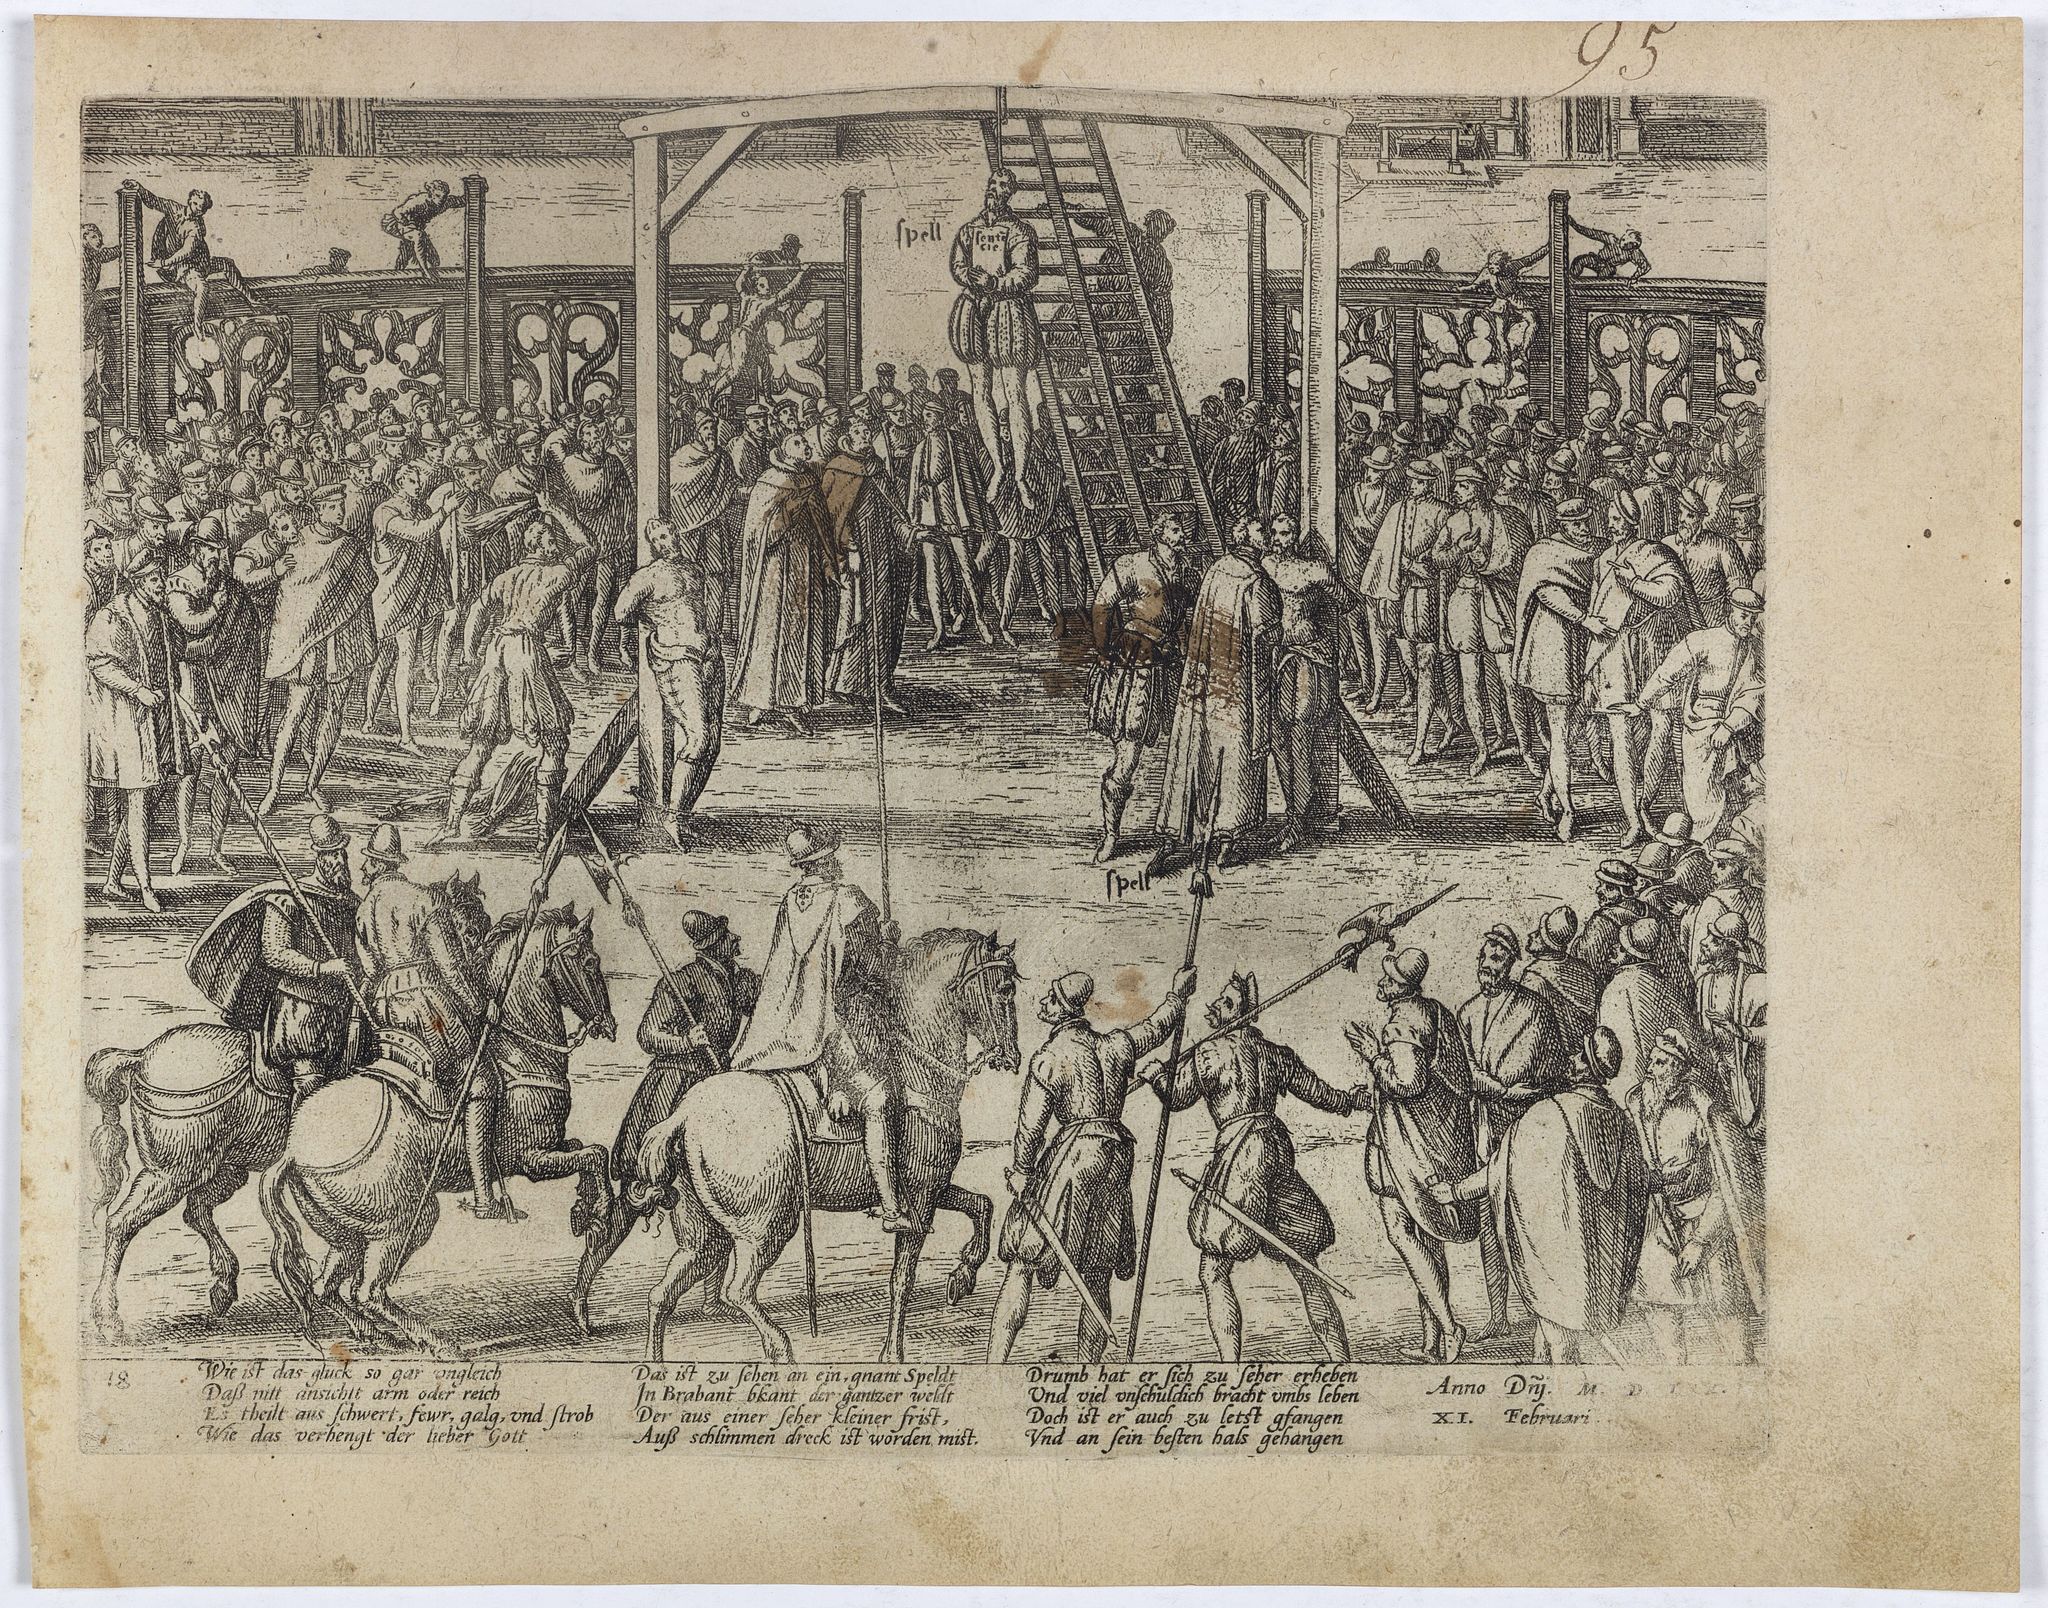 95
spell
sente
cie
spell
18
Wie ist das gluck so gar vngleich
Daß nitt ansichtt arm oder reich
Es theilt aus schwert, fewr, galg, vnd strob
Wie das verhengt der lieber Gott
Das ist zu sehen an ein, gnant Speldt
In Brabant bkant der gantzer weldt
Der aus einer seher kleiner frist,
Auß schlimmen dreck ist worden mist.
Drumb hat er sich zu seher erheben
Und viel vnschuldich bracht vmbs leben
Doch ist er auch zu letst gfangen
Vnd an sein besten hals gehangen
Anno Dnj. M. D.
XI. Februari.